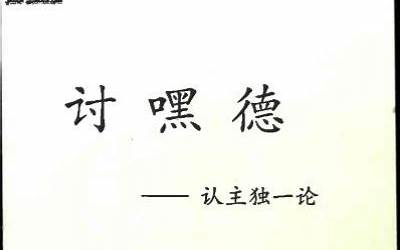 讨嘿德
——认主独一论